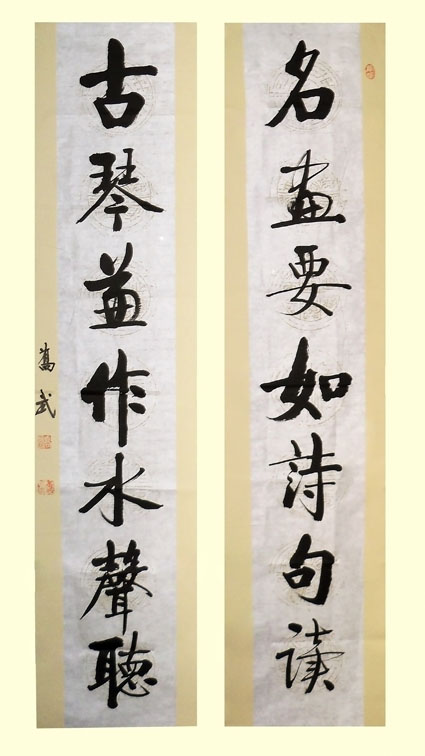 名畫要如詩句讀
古琴兼作水聲聽
武